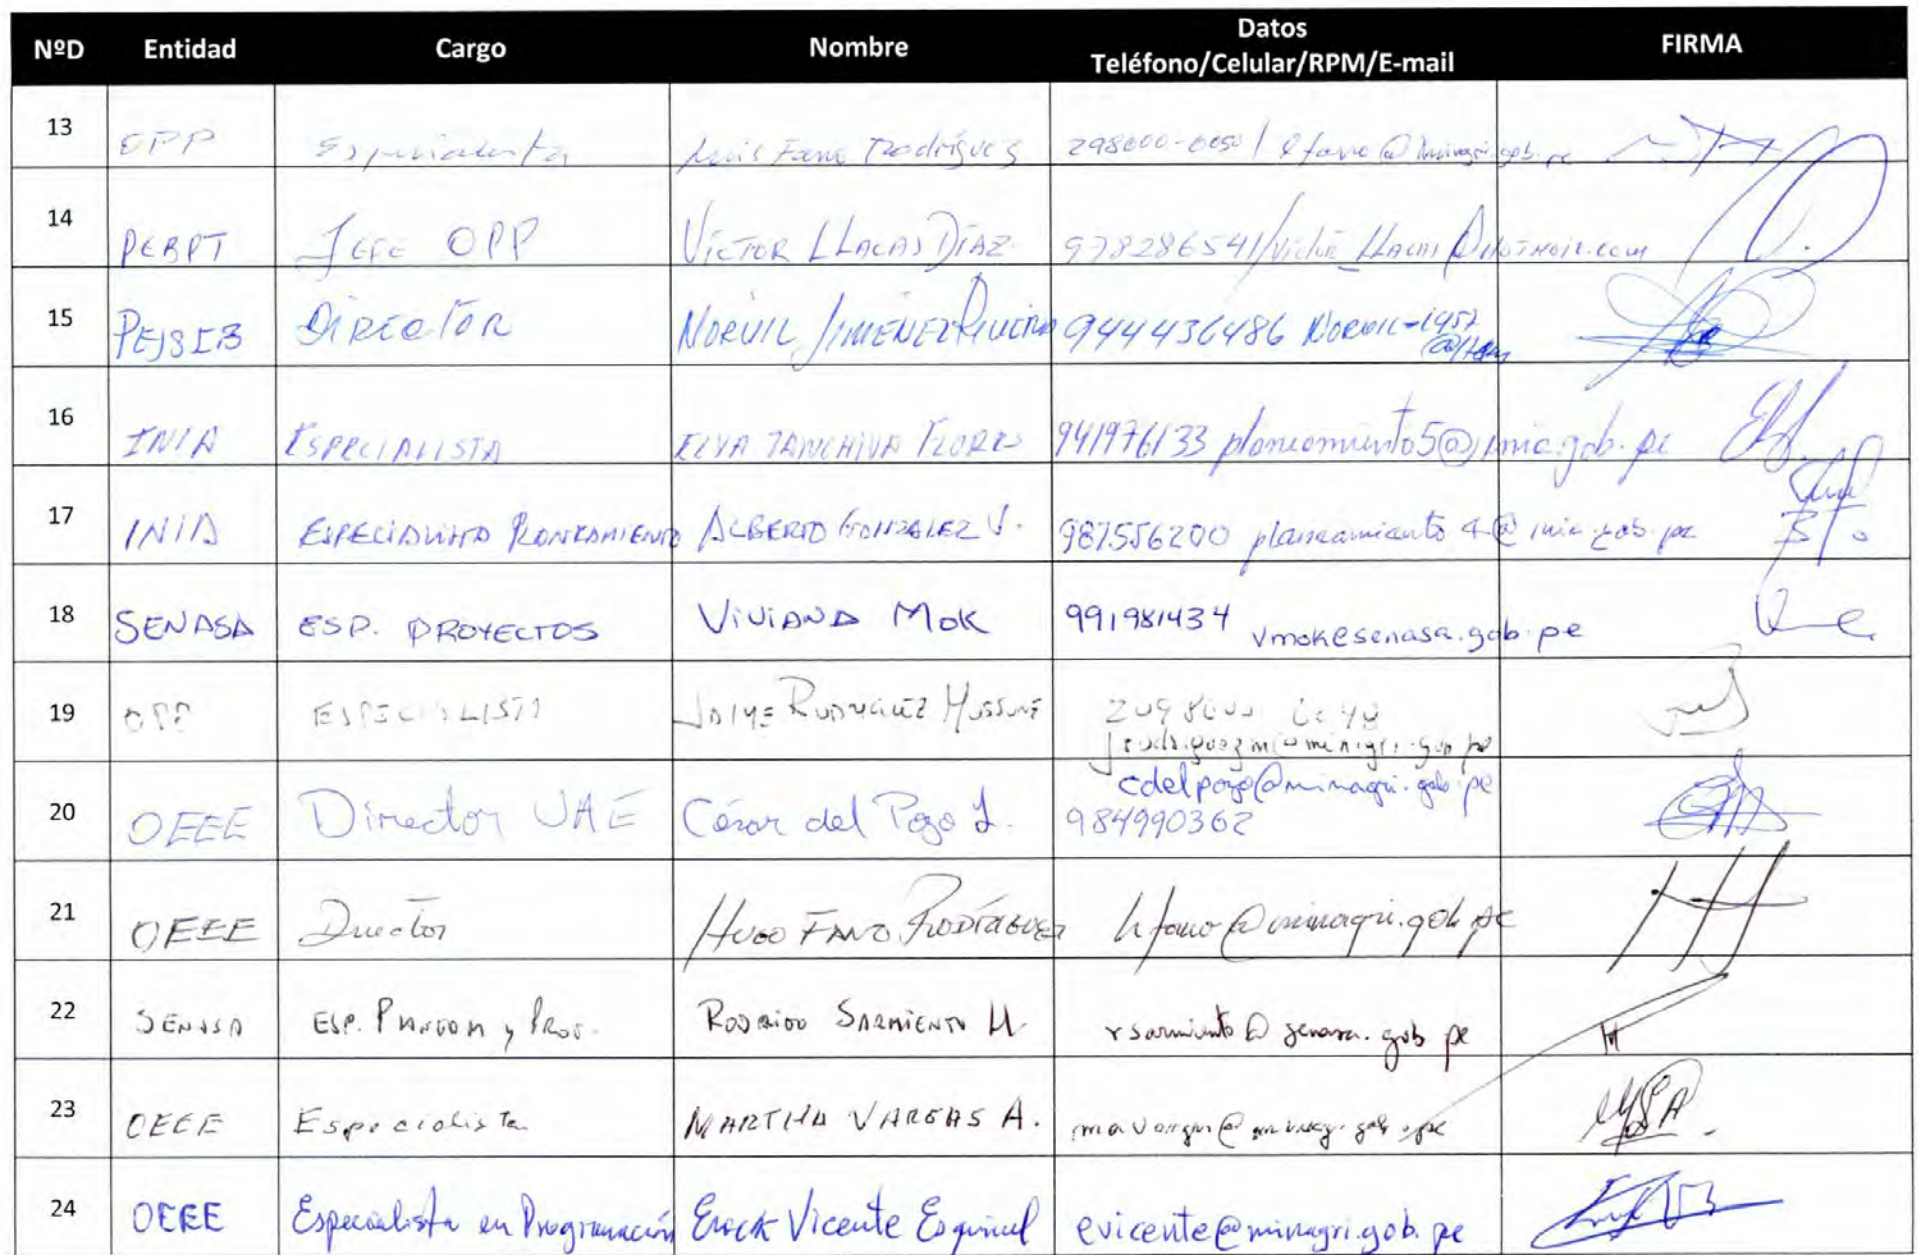 NºD Entidad Cargo Nombre Datos Teléfono/Celular/RPM/E-mail FIRMA
13 OPP Especialista Luis Fano Rodríguez
14 PEBPT JEFE OPP VÍCTOR LLACAS DÍAZ 978286541/
15 PEJSIB DIRECTOR NORVIL JIMÉNEZ 944436486 NORVIL-1957
16 INIA ESPECIALISTA ELVA TANCHIVA FLORES 941976133 planeamiento5@inia.gob.pe
17 INIA ESPECIALISTA PLANEAMIENTO ALBERTO GONZALEZ V. 987556200 planeamiento4@inia.gob.pe
18 SENASA ESP. PROYECTOS VIVIANA MOK 991981434 vmok@senasa.gob.pe
19 OPP ESPECIALISTA JAIME
20 OEEE Director UAE César del Pozo L. cdelpozo@minagri.gob.pe
984990362
21 OEEE Director HUGO FANO RODRÍGUEZ hfano@minagri.gob.pe
22 SENASA ESP. RODRIGO SARMIENTO rsarmiento@senasa.gob.pe
23 OEEE Especialista MARTHA VARGAS A.
24 OEEE Especialista en Programación Vicente evicente@minagri.gob.pe